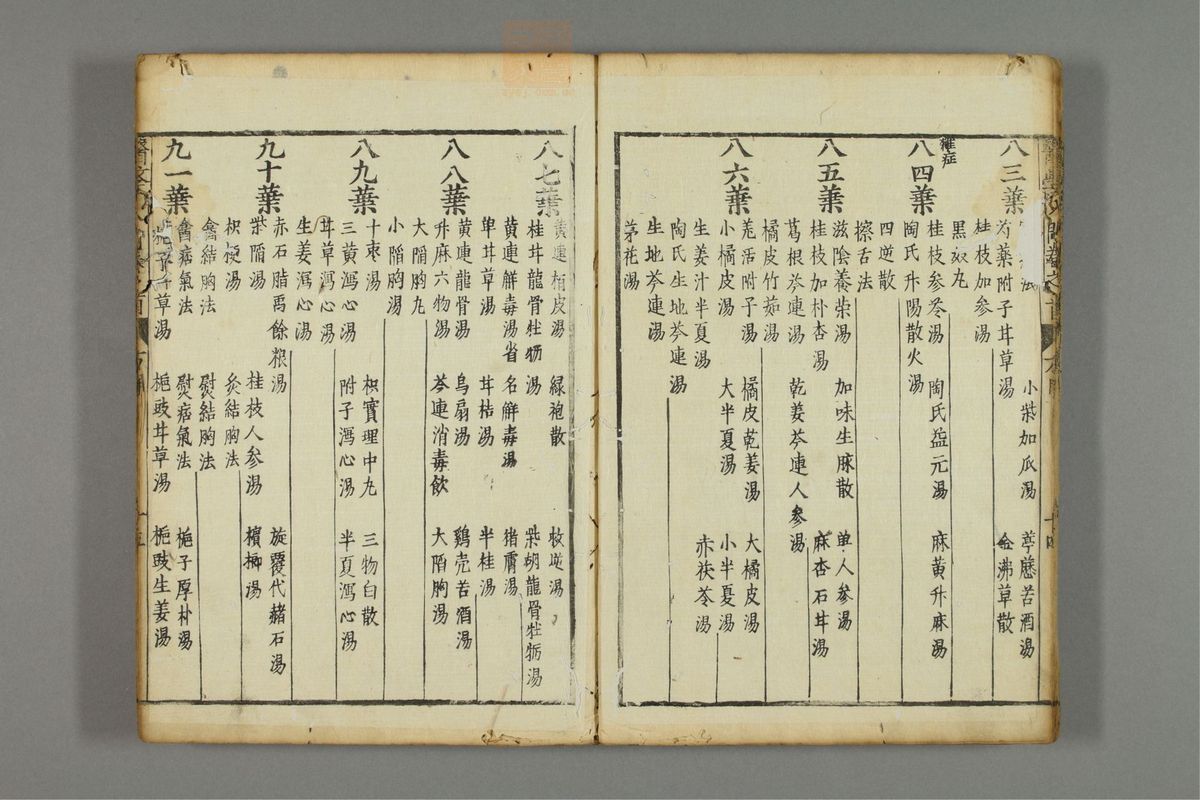 八三葉
芍藥附子甘草湯
小柴加瓜湯
葶藶苦酒湯
金沸草散
桂枝加參湯
黑奴丸
雜症
八四葉
桂枝參苓湯
陶氏益元湯
麻黃升麻湯
陶氏升陽散火湯
四逆散
擦舌法
八五葉
滋陰養榮湯
加味生脉散
単人參湯
桂枝加朴杏湯
麻杏石甘湯
葛根芩連湯
乾姜芩連人參湯
橘皮竹茹湯
八六葉
羗活附子湯
橘皮乾姜湯
大橘皮湯
小橘皮湯
大半夏湯
小半夏湯
生姜汁半夏湯
赤茯苓湯
陶氏生地芩連湯
生地芩連湯
茅花湯
八七葉
黃連栢皮湯
緑袍散
救逆湯
桂甘龍骨牡蛎湯
柴胡龍骨牡蛎湯
黃連解毒湯省名解毒湯
猪膚湯
単甘草湯
甘桔湯
半桂湯
八八葉
黃連龍骨湯
烏扇湯
鷄壳苦酒湯
升麻六物湯
芩連消毒飲
大陷胸湯
大陷胸丸
小陷胸湯
八九葉
十枣湯
枳實理中丸
三物白散
三黃瀉心湯
附子瀉心湯
半夏瀉心湯
甘草瀉心湯
生姜瀉心湯
九十葉
赤石脂禹餘粮湯
旋覆代赭石湯
柴陷湯
桂枝人參湯
檳榔湯
枳梗湯
灸結胸法
熨結胸法
九一葉
熨痞氣法
梔子厚朴湯
梔子甘草湯
梔豉甘草湯
梔豉生姜湯